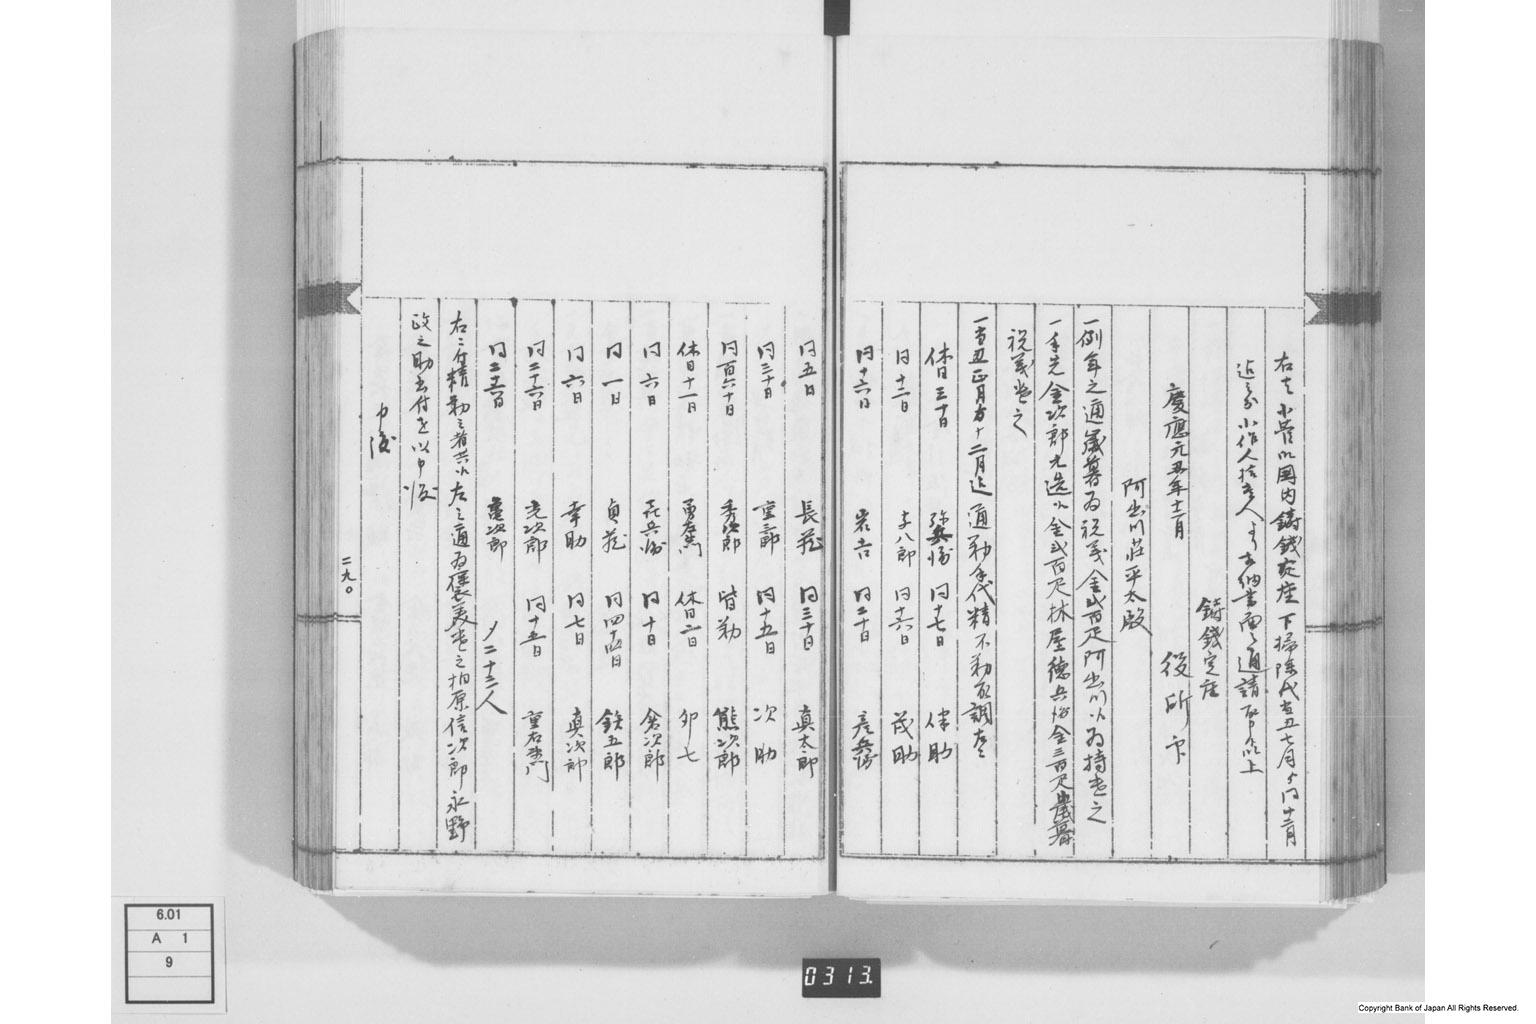 右者小菅御囲内鋳銭定座下掃除代当丑七月ゟ同十二月
迄分小作人
慶應元丑年十二月
鋳銭定座
役所
阿出川荘平太殿
一例年之通歳暮為祝義金弐百疋阿出川以為持遣之
一手先金次郎元造江金弐百疋林屋徳兵衛金三百疋歳暮
祝義遣之
一当丑正月ゟ十二月迄通勤手代精不勤取調左之
休日三十日 弥兵衛 同十七日 伴助
同十二日 与八郎 同十六日 茂助
同十六日 岩吉 同二十日 彦兵衛
同五日 長蔵 同三十日 真太郎
同三十日 重三郎 同十五日 次助
同百六十日 秀次郎 皆勤 熊次郎
休日十一日 勇左衛門 休日二日 卯七
同六日 喜兵衛 同十日 倉次郎
同一日 貞蔵 同四十四日 鉄五郎
同六日 幸助 同七日 真次郎
同二十六日 光次郎 同十五日 重右衛門
亀次郎
〆二十三人
右ニ付精勤之者共江左之通為褒美遣之柏原信次郎永野
政之助書付を以申渡
申渡
二九〇
6.01
A 1
9
0313.
Copyright Bank of Japan All Rights Reserved.